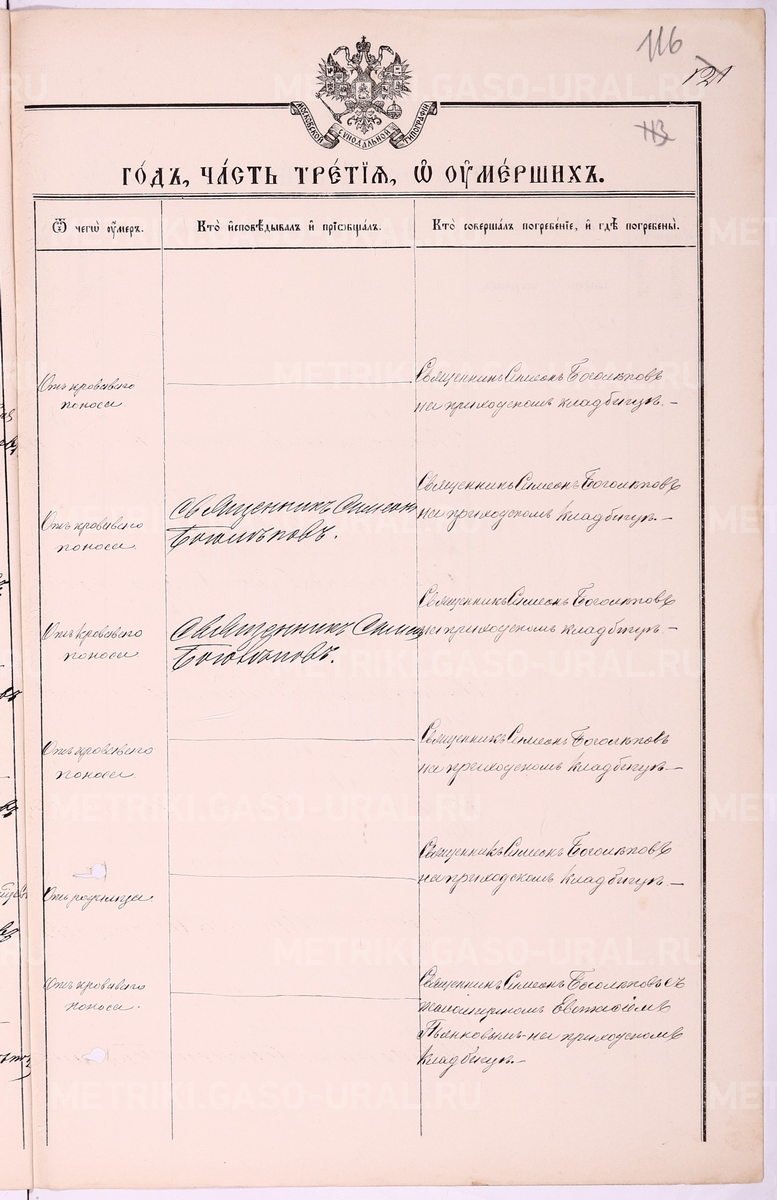 116
121
113
МОСКОВСКОЙ СУНОДАЛЬНОЙ ТИПОГРАФІИ
ГО́ДЪ, ЧА́СТЬ ТРЕ́ТІѦ, Ѡ ОУ҆МЕ́РШИХЪ.
Ѿ чегѡ̀ оу҆́меръ.
Кто̀ и҆сповѣ́дывалъ и҆ прїѻбща́лъ.
Кто̀ соверша́лъ погребе́нїе, и҆ гдѣ̀ погребены̀.
Отъ кроваваго
поноса
Священникъ Симеонъ Боголѣповъ
на приходскомъ кладбищѣ. –
Отъ кроваваго
поноса
Священникъ Симеонъ
Боголѣповъ.
Священникъ Симеонъ Боголѣповъ
на приходскомъ кладбищѣ. –
Отъ кроваваго
поноса
Священникъ Симеонъ
Боголѣповъ.
Священникъ Симеонъ Боголѣповъ
на приходскомъ кладбищѣ –
Отъ кроваваго
поноса
Священникъ Симеонъ Боголѣповъ
на приходскомъ кладбищѣ –
Отъ родимца
Священникъ Симеонъ Боголѣповъ
на приходскомъ кладбищѣ. –
Отъ кроваваго
поноса.
Священникъ Симеонъ Боголѣповъ съ
псаломщикомъ Евѳиміемъ
Пьянковымъ на приходскомъ
кладбищѣ. –
METRIKI.GASO-URAL.RU